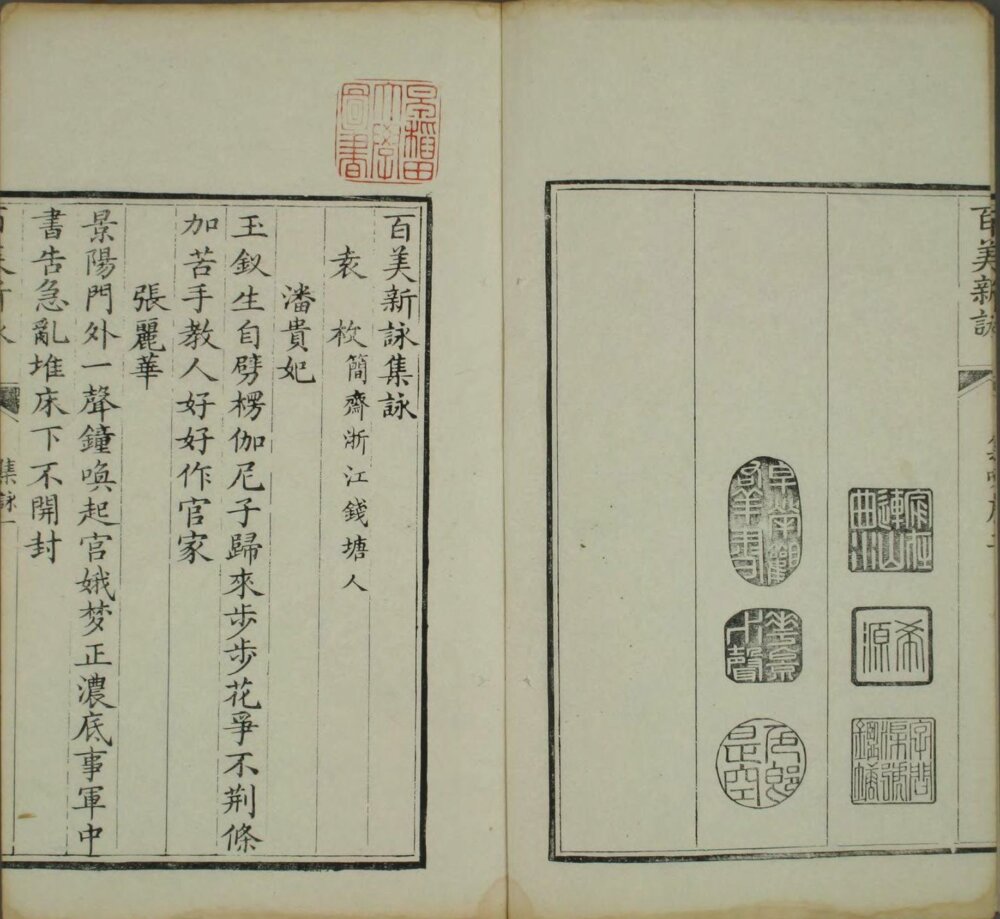 百美新詠
希源
色即是空
早稻田大學圖書
百美新詠集詠
袁枚簡齋浙江錢塘人
潘貴妃
玉釵生自劈楞伽尼子歸來步步花爭不荆條
加苦手教人好好作官家
張麗華
景陽門外一聲鐘喚起宫娥梦正濃底事軍中
書告急亂堆床下不開封
百美新詠
集詠一